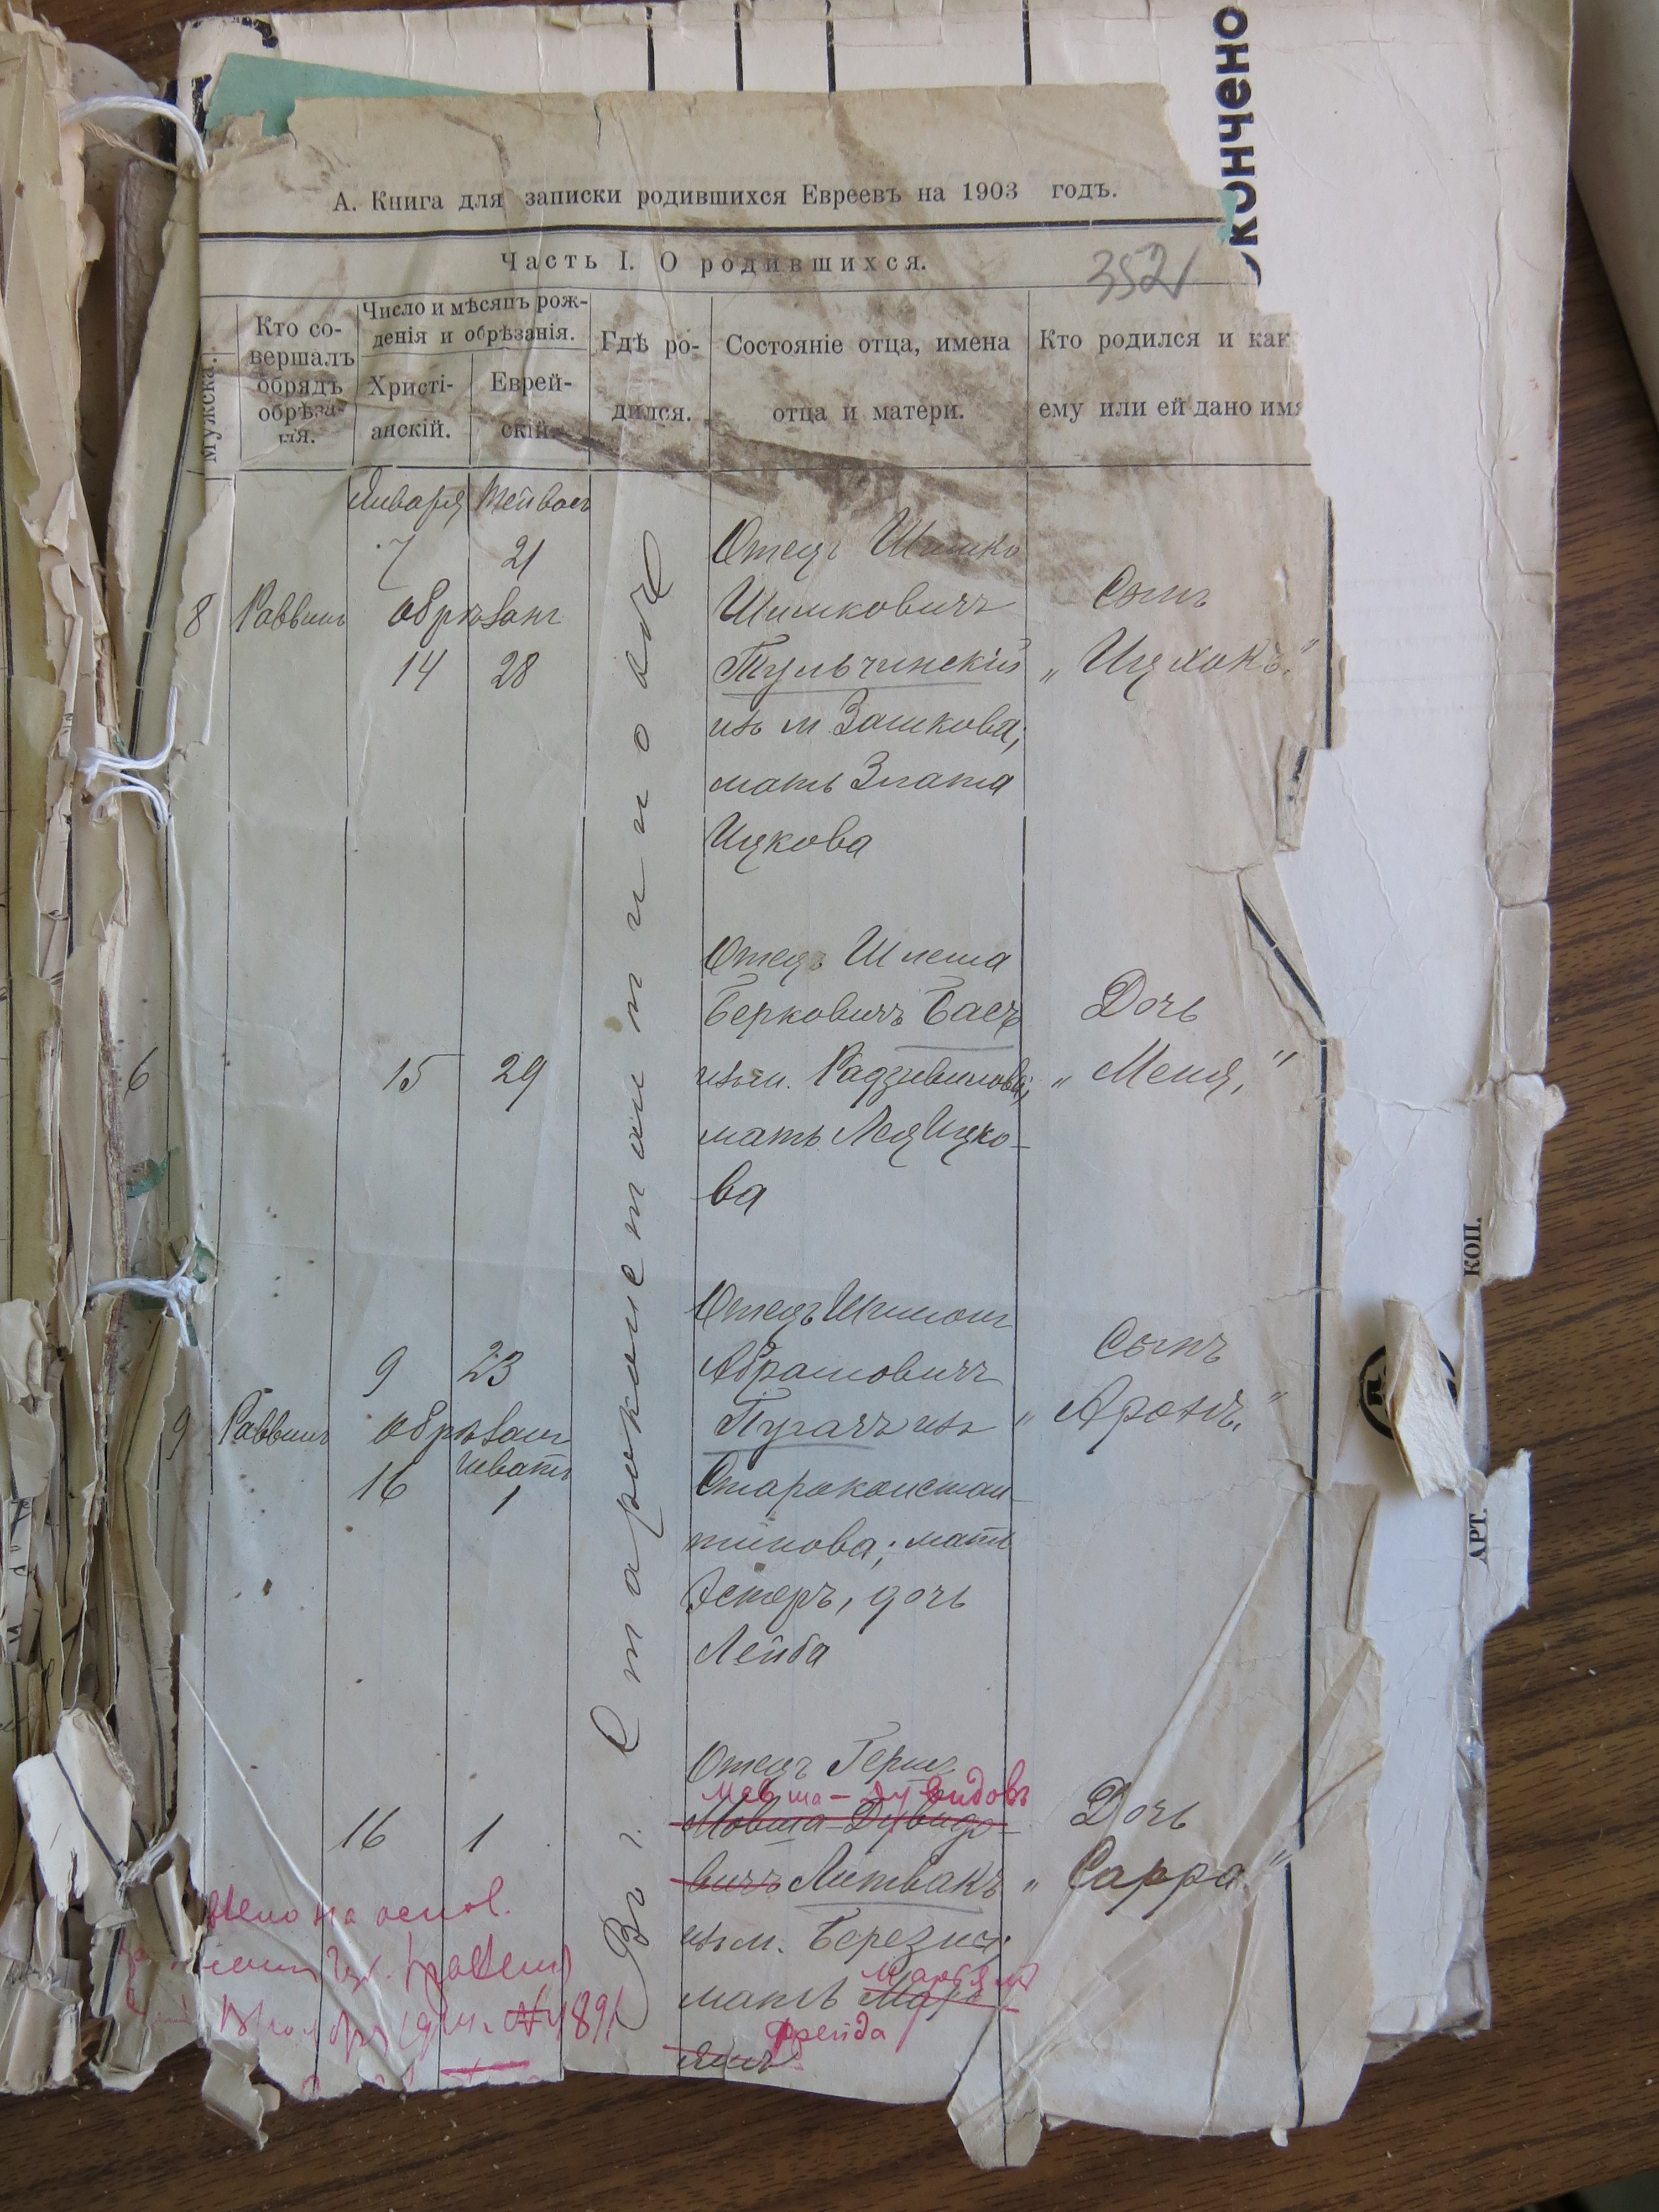 кончено
А. Книга для записки родившихся Евреевъ на 1903 годъ.
Часть I. О родившихся.
3521
Мужска.
Кто со-
вершалъ
обрядъ
обрѣза-
нія.
Число и мѣсяцъ рож-
денія и обрѣзанія.
Христі-
анскій.
Еврей-
скій.
Гдѣ ро-
дился.
Состояніе отца, имена
отца и матери.
Кто родился и как
ему или ей дано имя
Января Тейвесъ
7 21
8 Раввинъ обрѣзанъ
14 28
Отецъ Шимко
Шимковичъ
Тульчинскій
изъ м.
мать Злата
Ицкова
Сынъ
„Ицхокъ."
Въ г. Староконстантиновѣ
6
15 29
Отецъ Шлема
Берковичъ Басъ
изъ м. Радзивилова;
мать Лея Ицко-
ва
Дочь
„Меня,"
9 23
9 Раввинъ обрѣзанъ
Шватъ
16 1
Отецъ Шимонъ
Абрамовичъ
Пугачъ изъ
Староконстан-
тинова; мать
Эстеръ, дочь
Лейба
Сынъ
„Аронъ."
16 1
Отецъ Гершъ
Мовша-Дувидовъ
Мовша-Дувидо-
вичъ Литвакъ
изъ м.
Марьямъ
мать Марь-
Фрейда
ямъ
Дочь
„Сарра"
на основ.
Губ. Правлен
№ 4891
КОП.
АРТ.